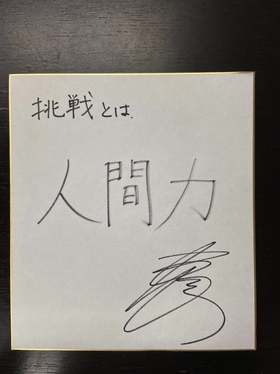 挑戦とは、
人間力